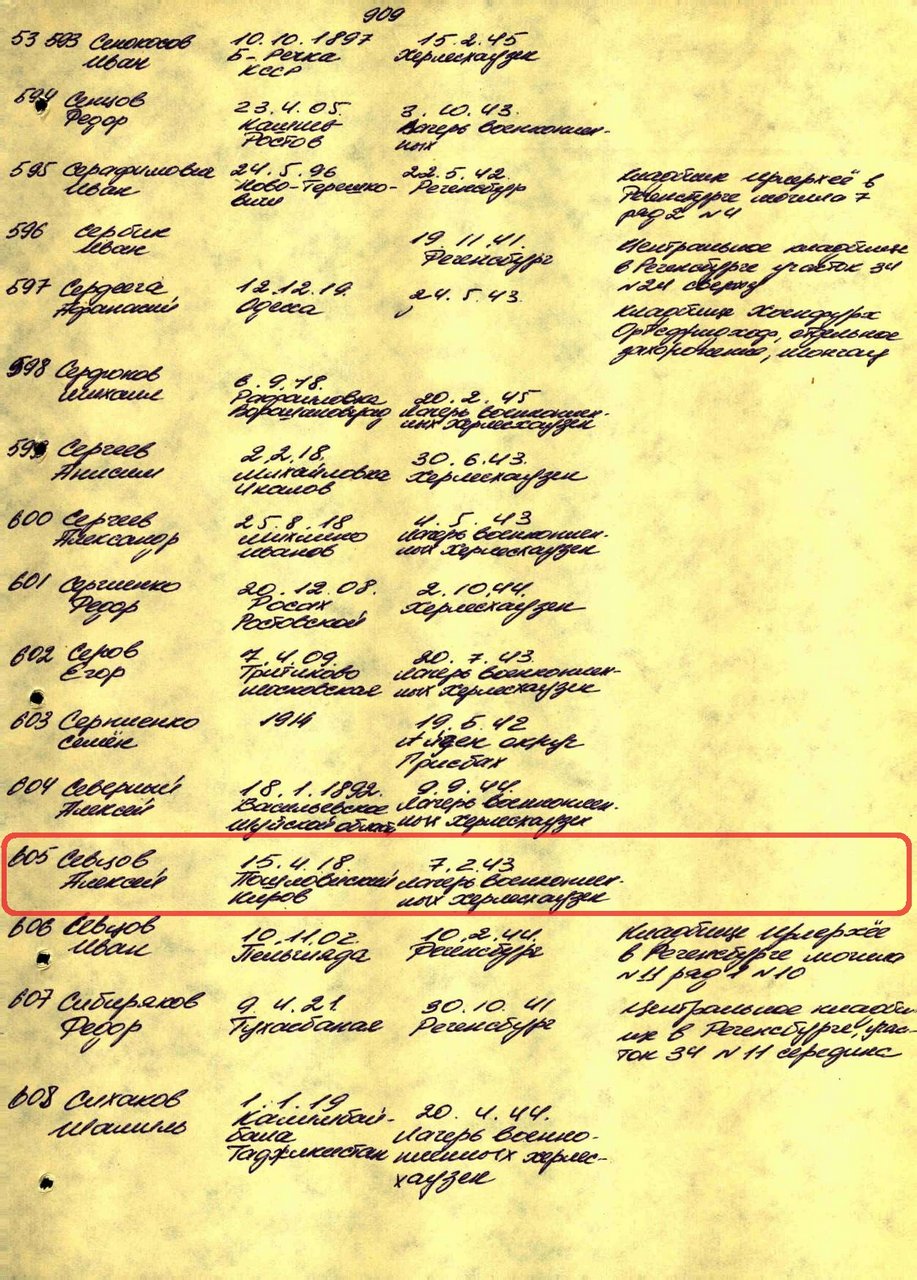 909
53 593 Сенокосов 10.10.1897 15.2.45
Иван Б-Речка Херлесхаузен
КССР
594 Сенцов 23.4.05. 3.10.43.
Федор Лагерь военноплен-
Ростов ных
595 Серафимовна 24.5.96 22.5.42. Кладбище Ирлерхёе в
Иван Ново-Терешко- Регенсбург Регенсбурге могила 7
вичи ряд 2 N4
596 Сербик 19.11.41. Центральное кладбище
Иван Регенсбург в Регенсбурге участок 34
N24 сверху
597 Сердега 12.12.19. 24.5.43. Кладбище
Афанасий Одесса отдельное
захоронение,
598 Сердюков 6.9.18. 20.2.45
Михаил Рафаиловка Лагерь военноплен-
Ворошиловград ных Херлесхаузен
599 Сергеев 2.2.18. 30.6.43.
Анисим Михайловка Херлесхаузен
Чкалов
600 Сергеев 25.8.18 4.5.43
Александр Лагерь военноплен-
Иванов ных Херлесхаузен
601 Сергиенко 20.12.08. 2.10.44.
Федор Росах Херлесхаузен
Ростовской
602 Серов 7.4.09. 20.7.43
Егор Тритиково Лагерь военноплен-
Московское ных Херлесхаузен
603 Серниенко 1914 19.5.42
Семён округ
604 Северный 18.1.1892. 9.9.44.
Алексей Васильевское Лагерь военноплен-
Шуйской област ных Херлесхаузен
605 Севцов 15.4.18 7.2.43
Алексей Лагерь военноплен-
Киров ных Херлесхаузен
606 Севцов 10.11.02. 10.2.44. Кладбище Ирлерхёе
Иван Регенсбург в Регенсбурге могила
N11 ряд 1 N10
607 Сибиряков 9.4.21. 30.10.41 Центральное кладби-
Федор Регенсбург ще в Регенсбурге, учас-
ток 34 N11 середина
608 Сихаков 1.1.19 20.4.44.
Шамиль Лагерь военно-
Таджикистан пленных Херлес-
хаузен